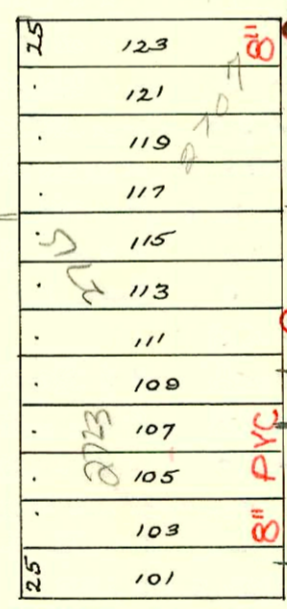 25 123 8"
121
119 2707
117
115
113
111
109
2723 107
105 PVC
103 8"
25 101